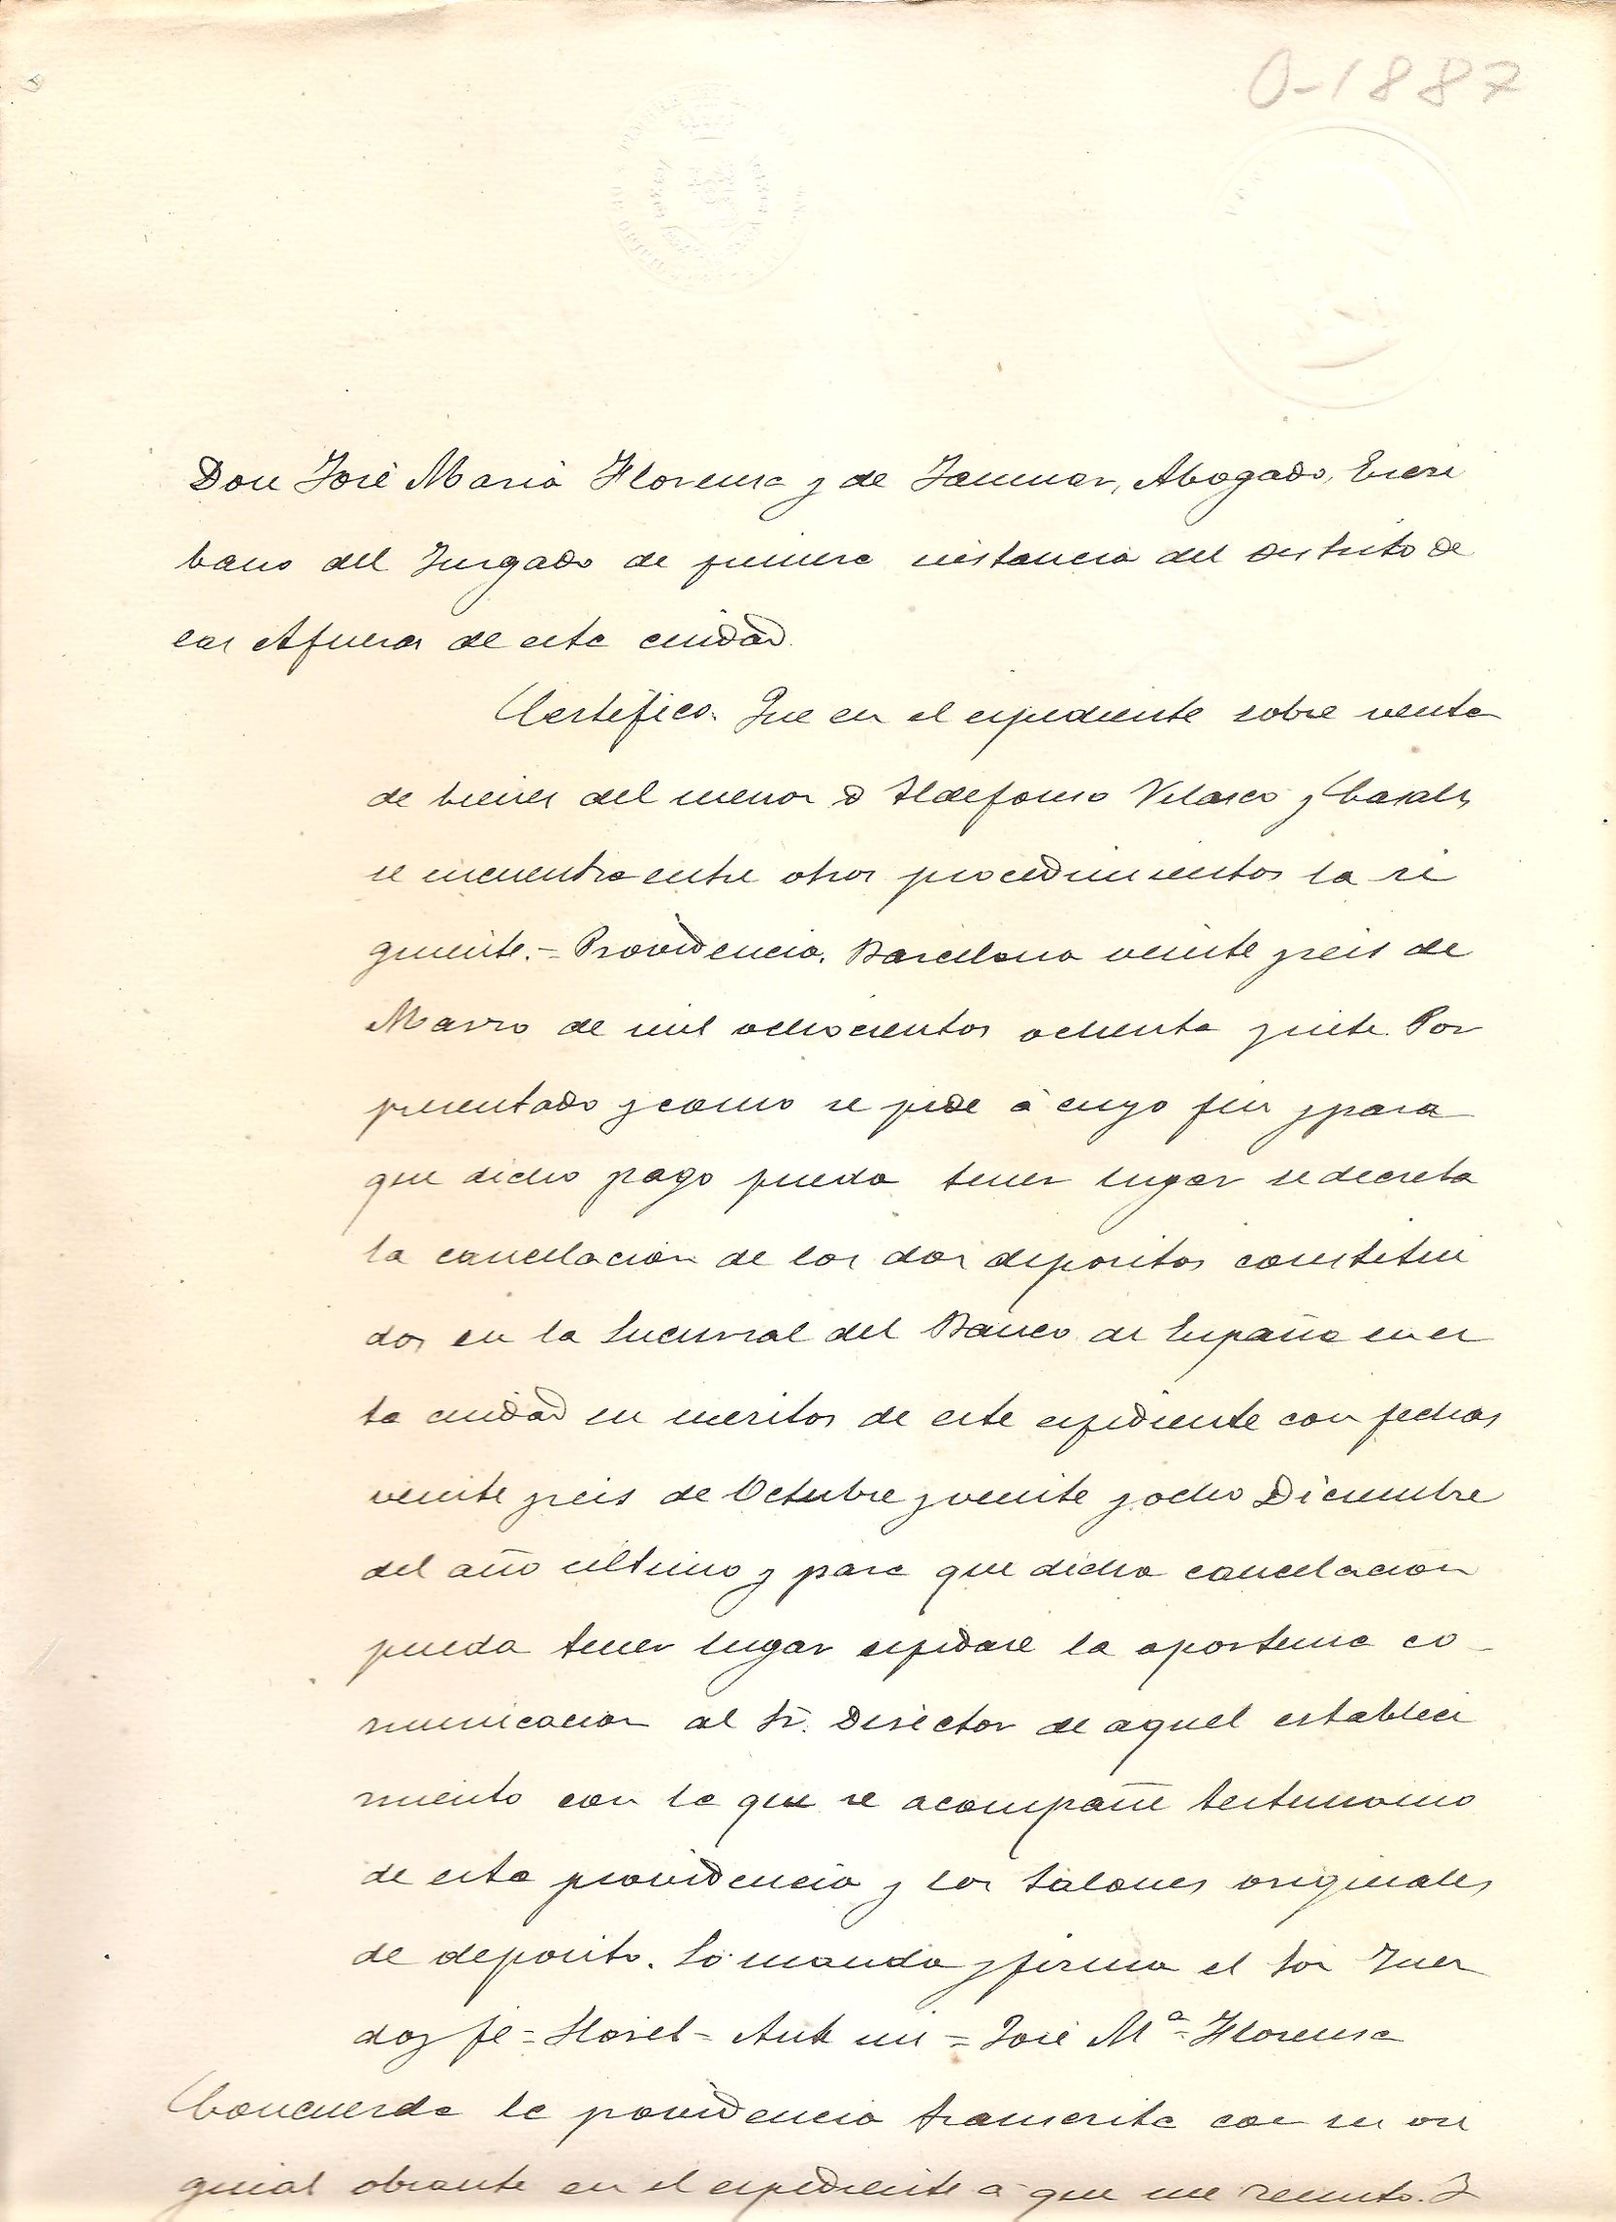 0-1887
Don José Maria Florensa y de Jaumar, Abogado, Escri
bano del Juzgado de primera instancia del distrito de
las Afueras de esta ciudad.
Certifico. Que en el espediente sobre venta
de bienes del menor D Ildefonso Velasco y Casals,
se encuentra entre otros procedimientos la si
guiente.= Providencia. Barcelona veinte y seis de
Marzo de mil ochocientos ochenta y siete. Por
presentado y como se pide á cuyo fin y para
que dicho pago pueda tener lugar se decreta
la cancelacion de los dos depositos constitui
dos en la Sucursal del Banco de España en es
ta ciudad en meritos de este espediente con fechas
veinte y seis de Octubre y veinte y ocho Diciembre
del año último y para que dicha cancelacion
pueda tener lugar espidase la oportuna co-
municacion al Sr. Director de aquel estableci
miento con la que se acompañe testimonio
de esta providencia y los talones originales
de deposito. Lo manda y firma el Sor Juez
doy fé= = Ant mi = José Mª Florensa
Concuerda la providencia transcrita con su ori
ginal obrante en el espediente a que me remito. Y